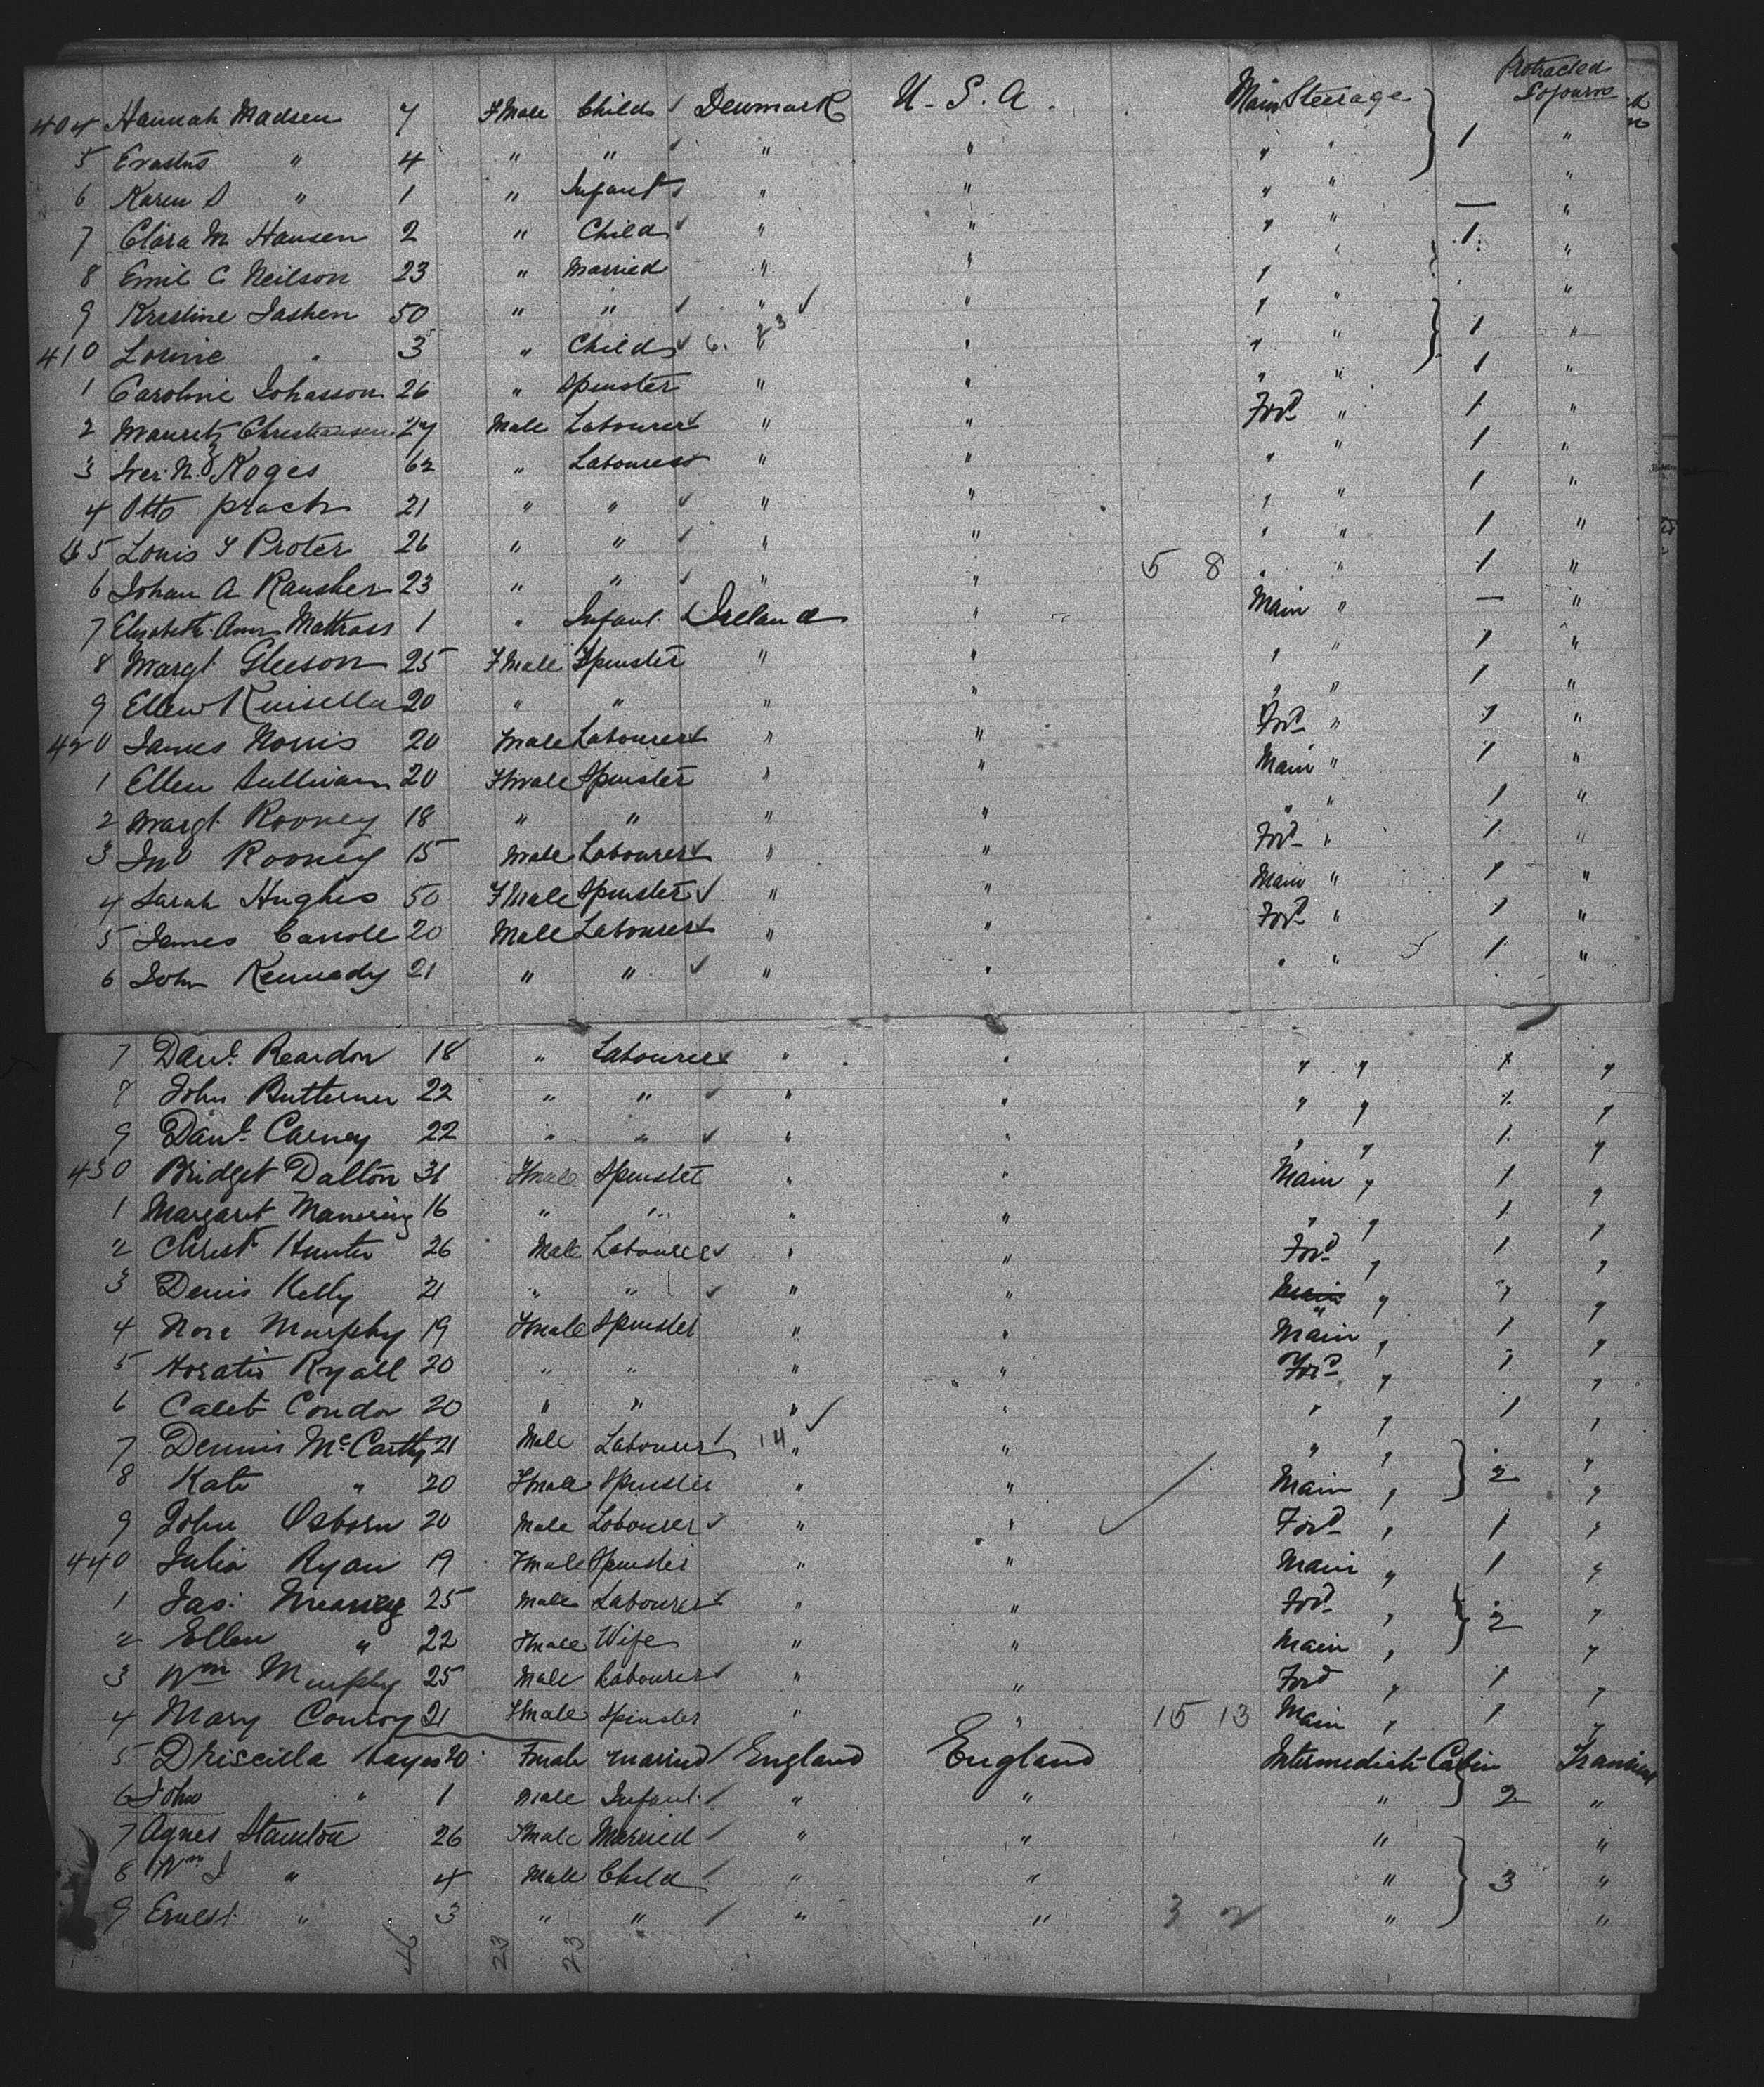 Protracted
Sojourn
404 Hannah Madsen 7 Fmale Child Denmark U. S. A. Main Steerage
5 Erastus " 4 " " " " " " 1 "
6 Karen S " 1 " Infant " " " " "
7 Clara M Hansen 2 " Child " " " " — "
8 Emil C Neilson 23 " Married " " " " 1 "
9 Kristine Jashen 50 " " " " " " "
410 Lovine " 3 " Child " " " " 1 "
1 Caroline Johasson 26 " Spinster " " " " 1 "
2 Mauretz Christiansen 27 Male Labourer " " Ford " 1 "
3 Iver N. Koges 62 " Labourer " " " " 1 "
4 Otto Prach 21 " " " " " " 1 "
5 Louis Y Proter 26 " " " " " " 1 "
6 Johan A Rausher 23 " " " " 5 8 " " 1 "
7 Elizabeth Ann Mattrass 1 " Infant Ireland " Main " — "
8 Margt Gleeson 25 Fmale Spinster " " " " 1 "
9 Ellen Kinsella 20 " " " " " " 1 "
420 James Norris 20 Male Labourer " " Ford " 1 "
1 Ellen Sullivan 20 Fmale Spinster " " Main " 1 "
2 Margt Rooney 18 " " " " " " 1 "
3 Jno Rooney 15 Male Labourer " " Ford " 1 "
4 Sarah Hughes 50 Fmale Spinster " " Main " 1 "
5 James Carroll 20 Male Labourer " " Ford " 1 "
6 John Kennedy 21 " " " " " " 1 "
7 Danl. Reardon 18 " Labourer " " " " 1 "
8 John Butterner 22 " " " " " " 1 "
9 Danl. Carney 22 " " " " " " 1 "
430 Bridget Dalton 31 Fmale Spinster " " Main " 1 "
1 Margaret Mannering 16 " " " " " " 1 "
2 Christ Hunter 26 Male Labourer " " Ford " 1 "
3 Denis Kelly 21 " " " " Main " " 1 "
4 Nore Murphy 19 Fmale Spinster " " Main " 1 "
5 Horatio Ryall 20 " " " " Ford " 1 "
6 Caleb Condor 20 " " " " " " 1 "
7 Dennis McCarthy 21 Male Labourer 14 " " " " "
8 Kate " 20 Fmale Spinster " " Main " 2 "
9 John Osborn 20 Male Labourer " " Ford " 1 "
440 Julia Ryan 19 Fmale Spinster " " Main " 1 "
1 Jas. 25 Male Labourer " " Ford " "
2 Ellen " 22 Fmale Wife " " Main " 2 "
3 Wm Murphy 25 Male Labourer " " Ford " 1 "
4 Mary Conroy 21 Fmale Spinster " " 15 13 Main " 1 "
5 Driscilla Hayes 20 Fmale Married England England Intermediate Cabin Transient
6 John " 1 Male Infant " " " 2 "
7 Agnes Staunton 26 Fmale Married " " " "
8 Wm J " 4 Male Child " " " 3 "
9 Ernest " 3 " " " " 3 2 " "
46 23 23